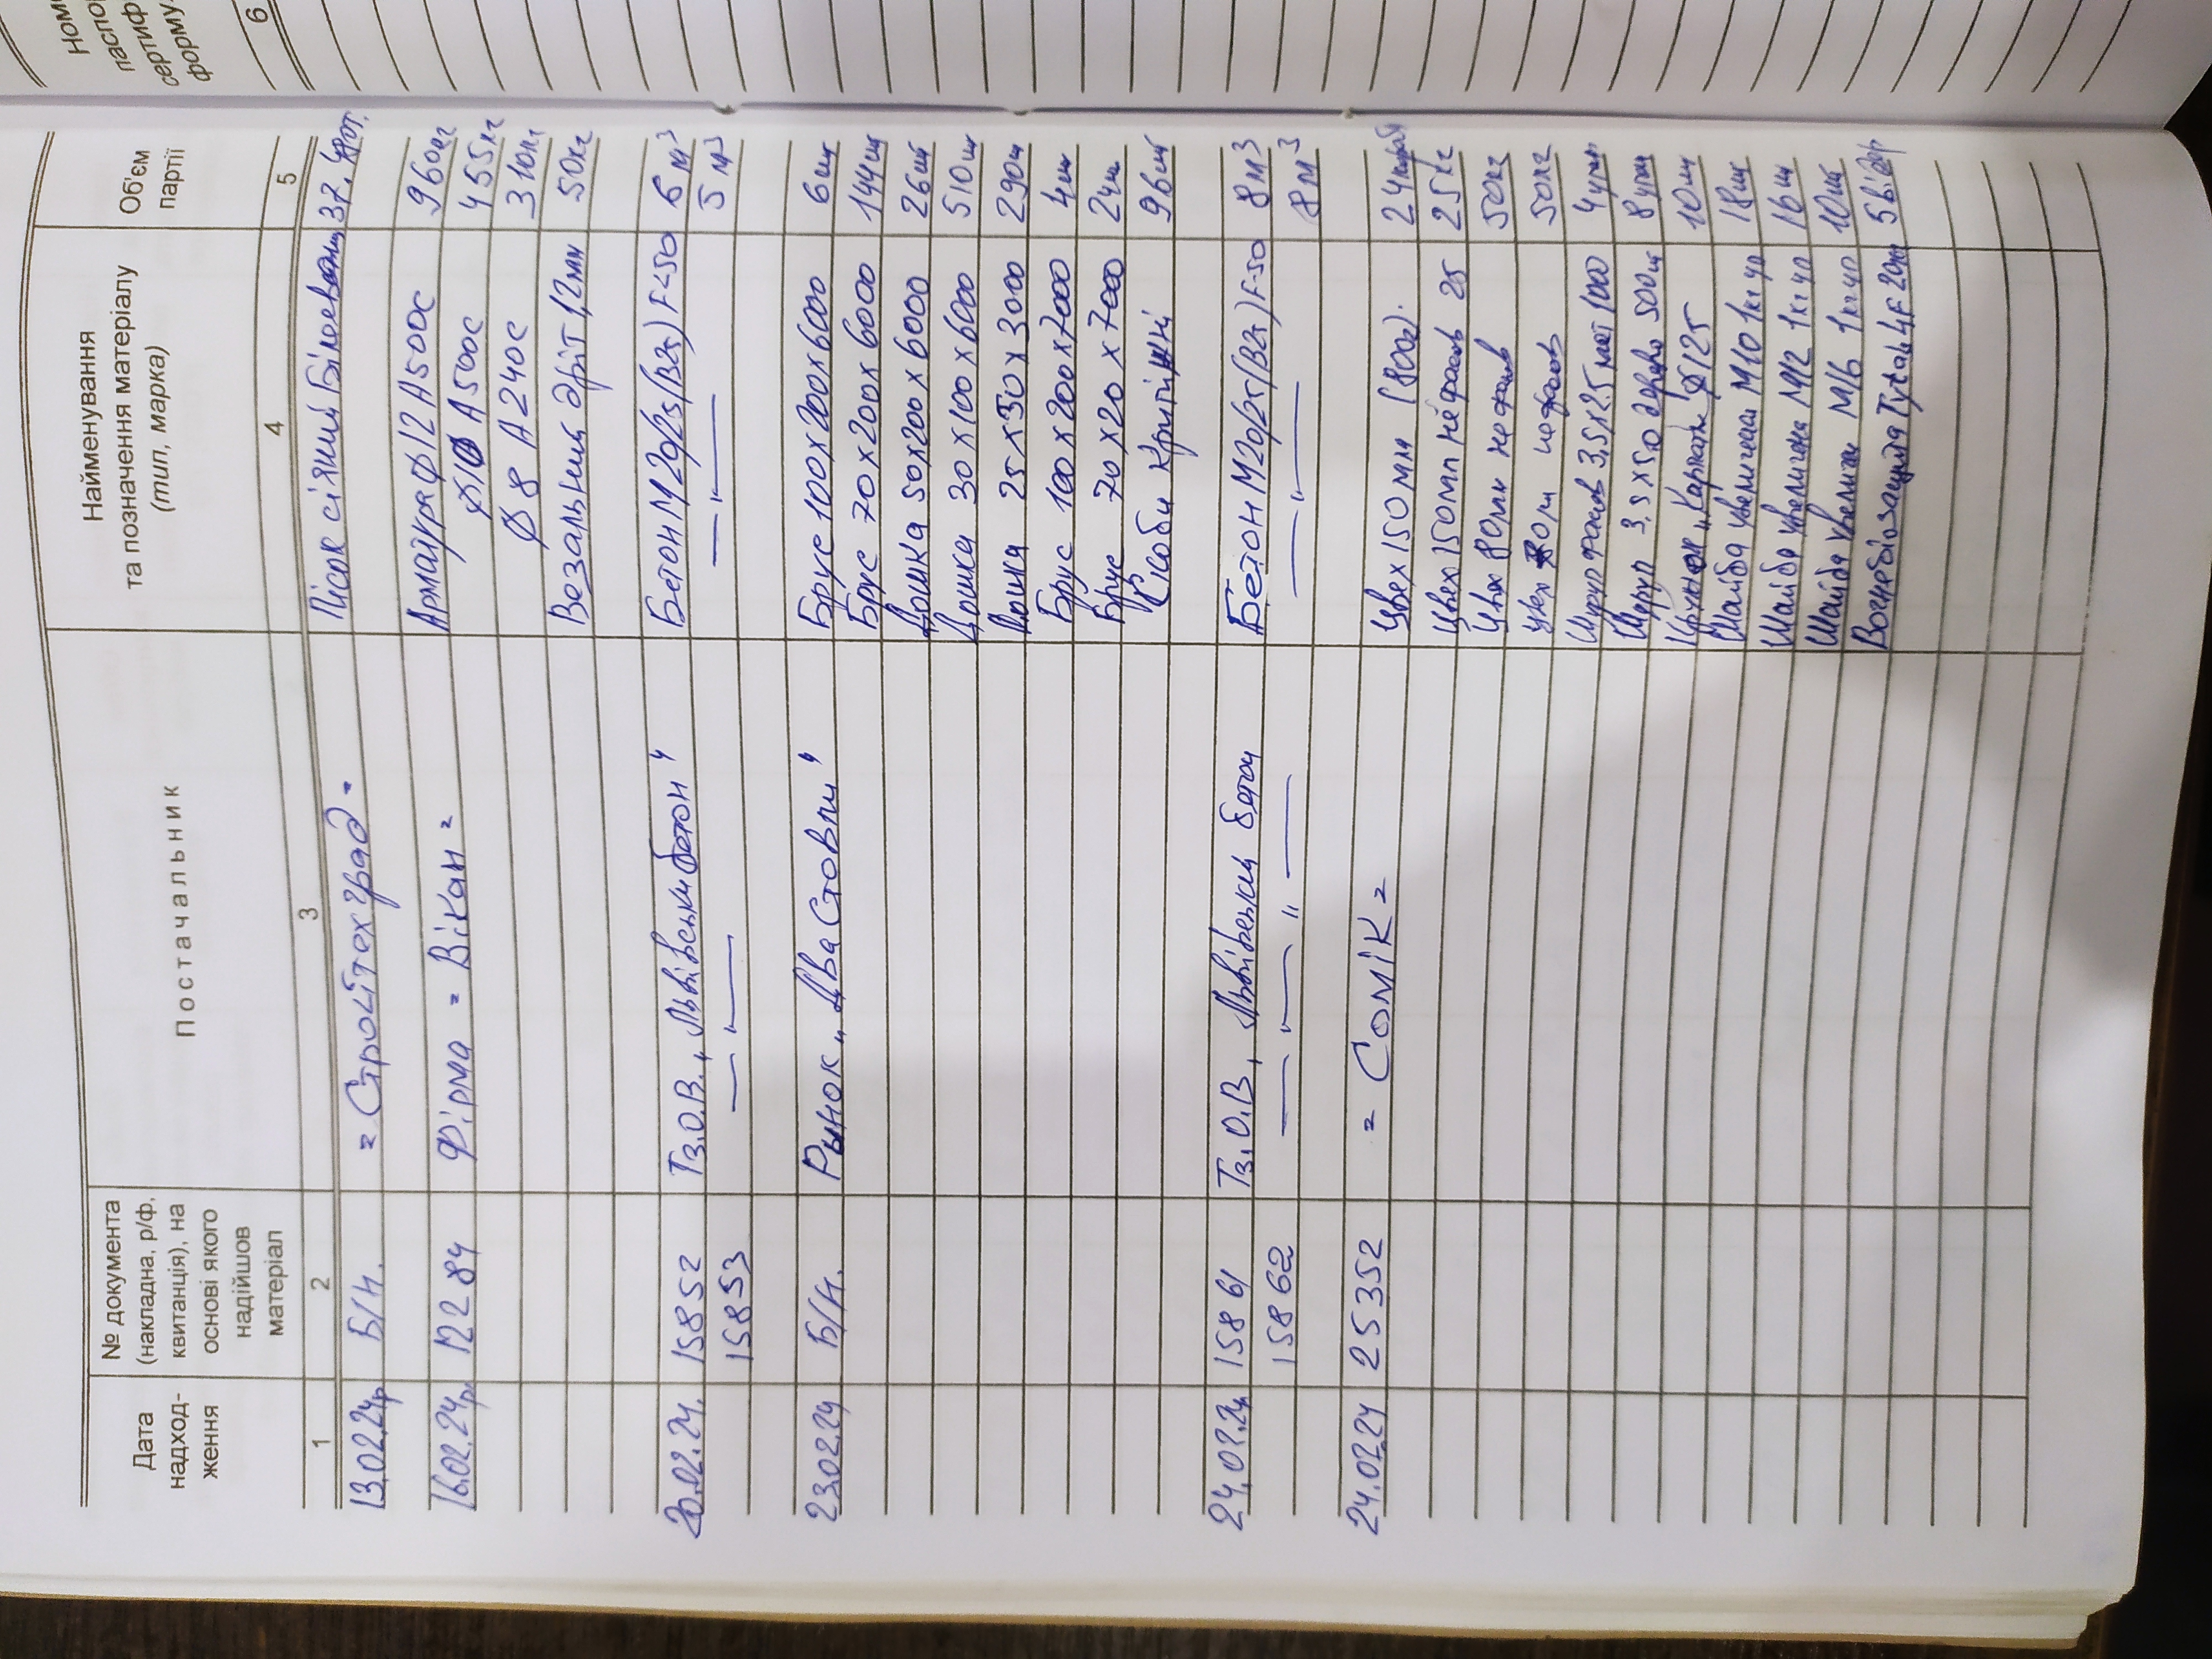 Дата надход-ження | № документа (накладна, р/ф, квитанція), на основі якого надійшов матеріал | Постачальник | Найменування та позначення матеріалу (тип, марка) | Об'єм партії
1 | 2 | 3 | 4 | 5 | 6
13.02.24р Б/н. = Строїтехград = Пісок сіяний
16.02.24р 12284 Фірма = Вікан = Арматура Ф12 А500с 960кг
Ф10 А500с 455кг
Ф 8 А240с 310кг
Вязальний дріт 1,2мм 50кг
20.02.24. 15852 Тз.О.В. „Львівський бетон" Бетон М20/25/(В25) F-50 6 м³
15853 —"— —"— 5 м³
23.02.24 Б/н. Рынок „Два Стовпи" Брус 100х200х6000 6шт
Брус 70х200х6000 144шт
Дошка 50х200х6000 26шт
Дошка 30х100х6000 510шт
Дошка 25х150х3000 290ш
Брус 100х200х7000 4шт
Брус 70х20х7000 24ш
Скоби Кріпильні 96шт
24.02.24 15861 Тз.О.В, „Львівський бетон Бетон М20/25/(В25) F-50 8м³
15862 —"— —"— 8м³
24.02.24 25352 = Сомік = Цвех 150мм (800г).
Цвех 150мм не фасов 25 25кг
Цвех 80мм не фасов 50кг
цвех 50кг
Шуруп 3,5х25 1000 4упак
Шуруп 3,5х50 дерево 500шт 8упак
Ф125 10ш
Шайба увелична М10 1кг 18шт
Шайба увелична М12 1кг 16ш
Шайба увелич М16 1кг 10шт
Вогнебіозащита 5відер
Номе
паспо
сертиф
форму